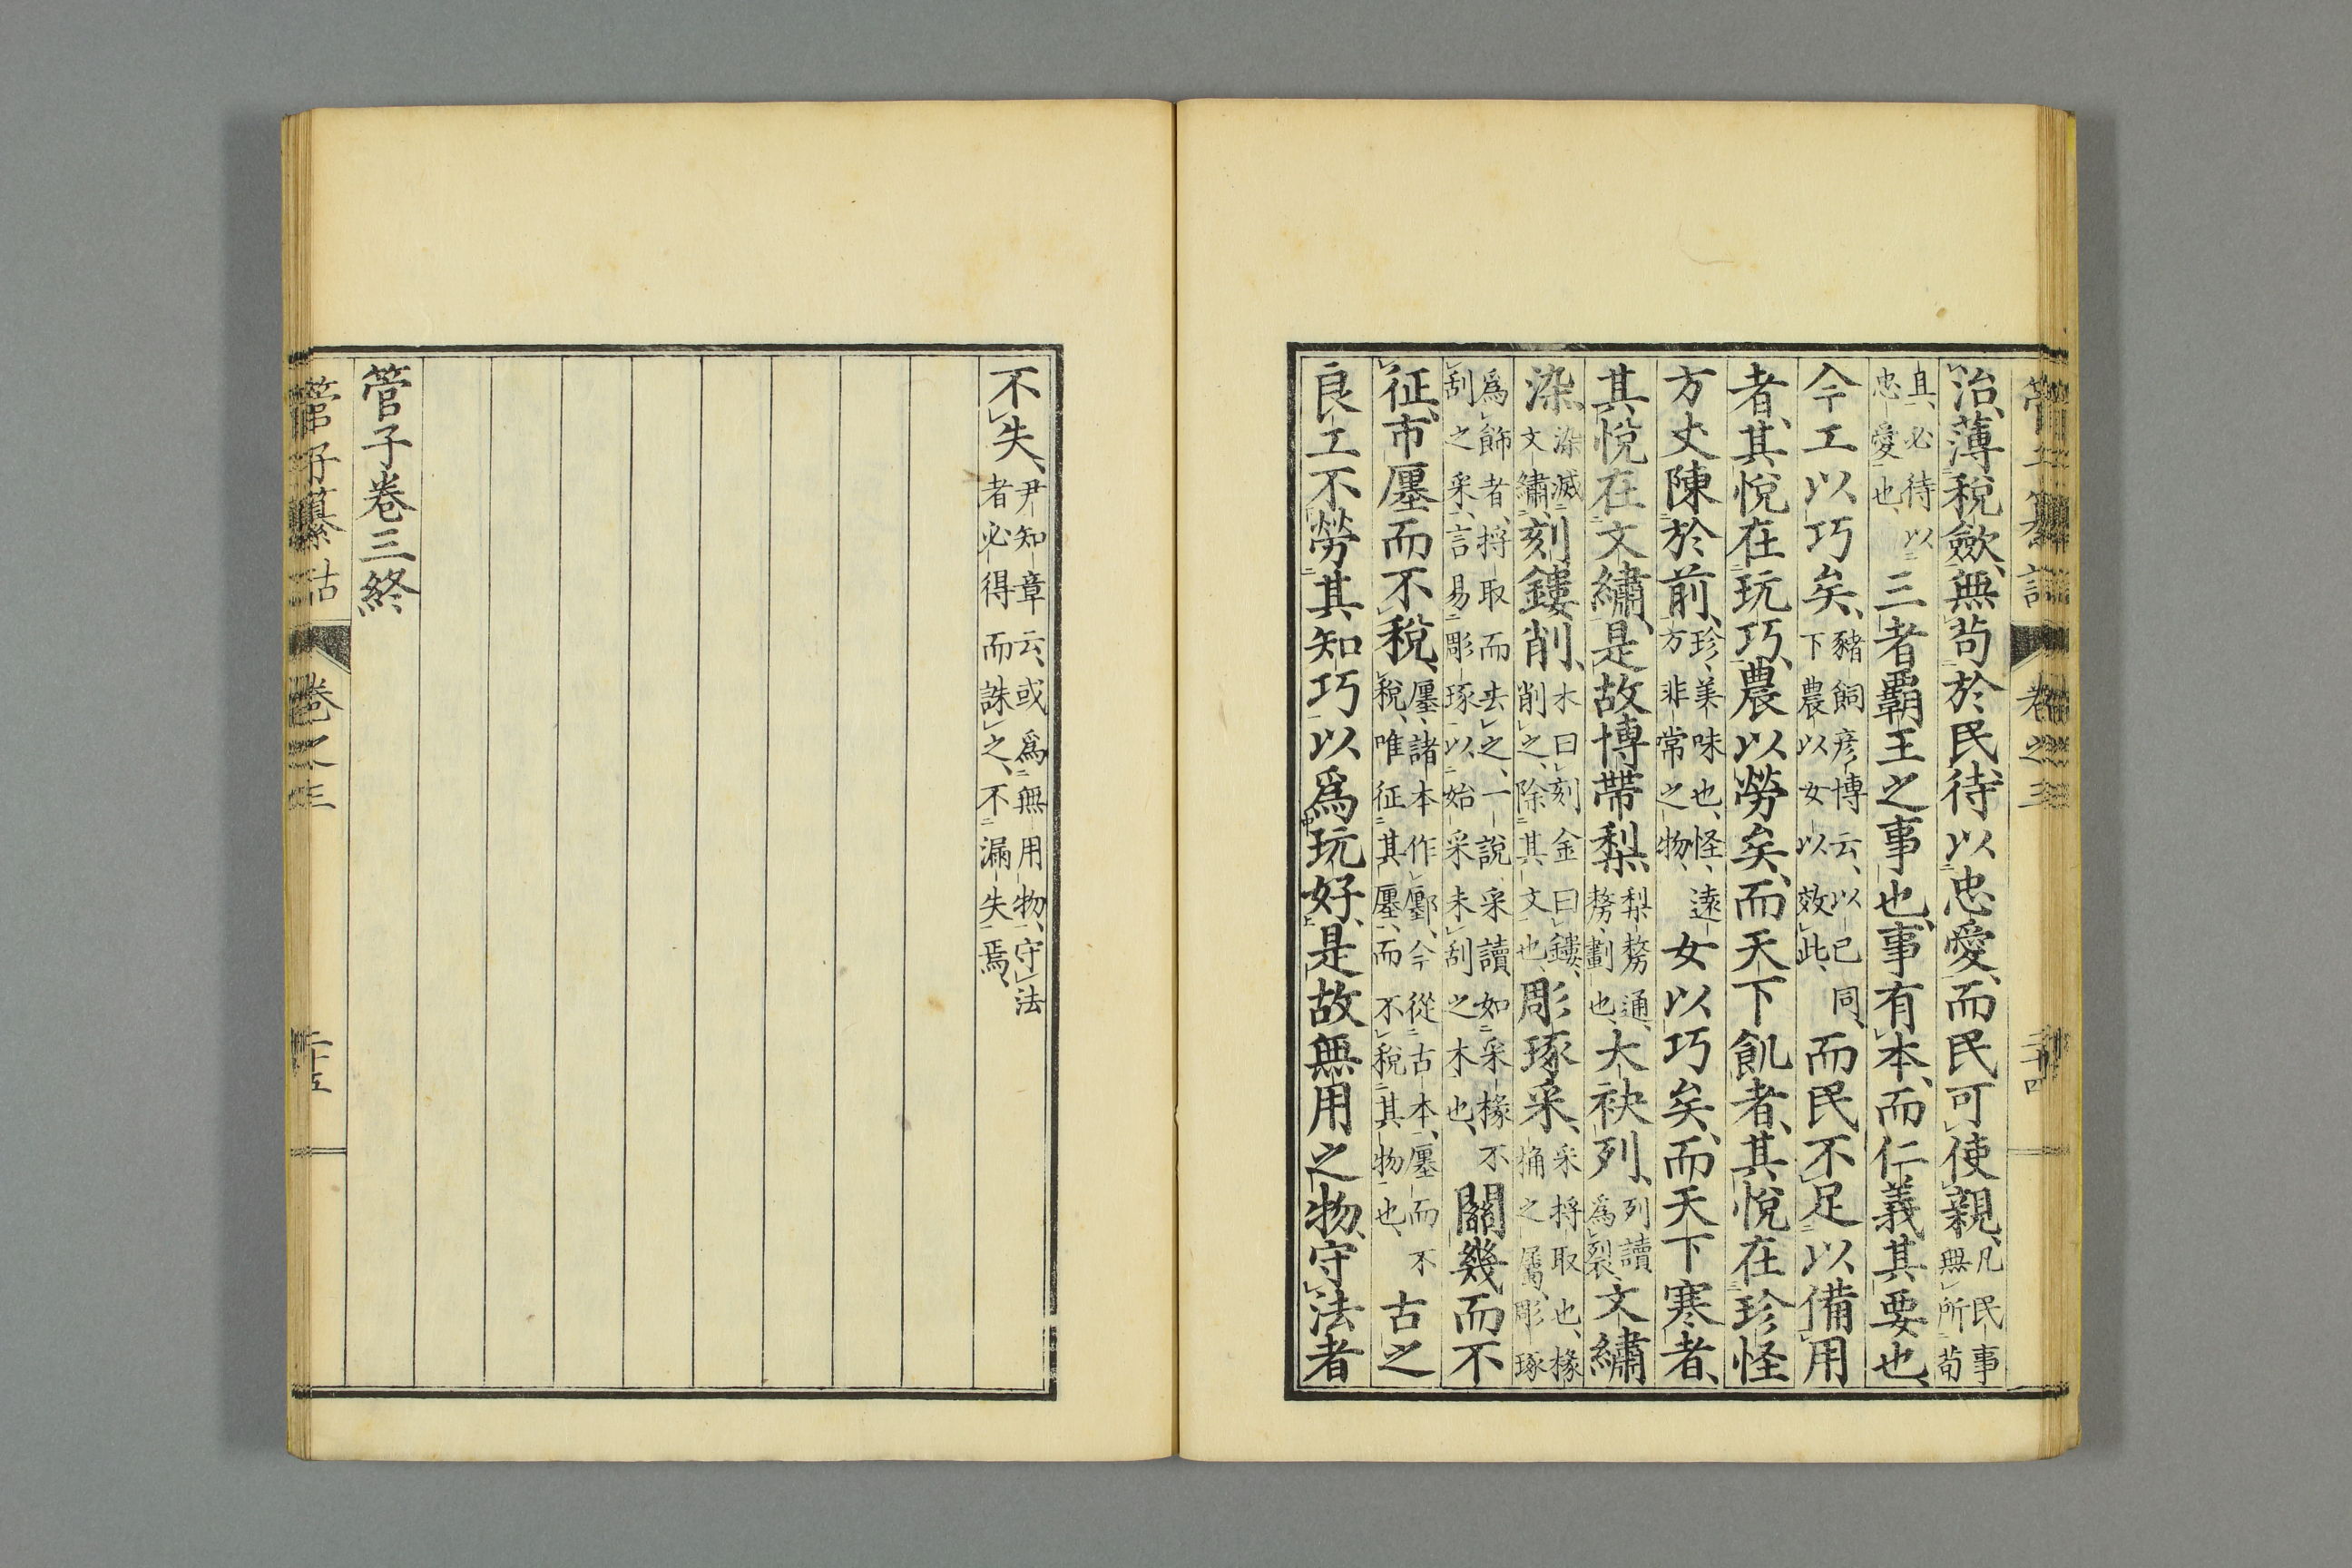 治、薄稅斂、無苟於民、待以忠愛、而民可使親、凡民事無所苟
且、必待以忠愛也、三者霸王之事也、事有本、而仁義其要也、
今工以巧矣、豬飼彦博云、以已同、下農以女以效此、而民不足以備用
者、其悅在玩巧、農以勞矣、而天下飢者、其悅在珍怪
方丈陳於前、珍美味也、怪、遠方非常之物、女以巧矣、而天下寒者、
其悅在文繡、是故博帶梨、梨剺通、剺劃也、大袂列、列讀爲裂、文繡
染、染滅文繡、刻鏤削、木曰刻金曰鏤、削之、除其文也、彫琢采、采捋取也、椽桷之屬、彫琢
爲飾者、捋取而去之、一說采讀如采椽不刮之采、言易彫琢以始采未刮之木也、關幾而不
征、市廛而不稅、廛、諸本作鄽、今從古本、廛而不稅、唯征其廛、而不稅其物也、古之
良工不勞其知巧以爲玩好、是故無用之物、守法者
管子纂詁 卷之三
不失、尹知章云、或爲無用物、守法者必得而誅之、不漏失焉、
管子卷三終
管子纂詁 卷之三